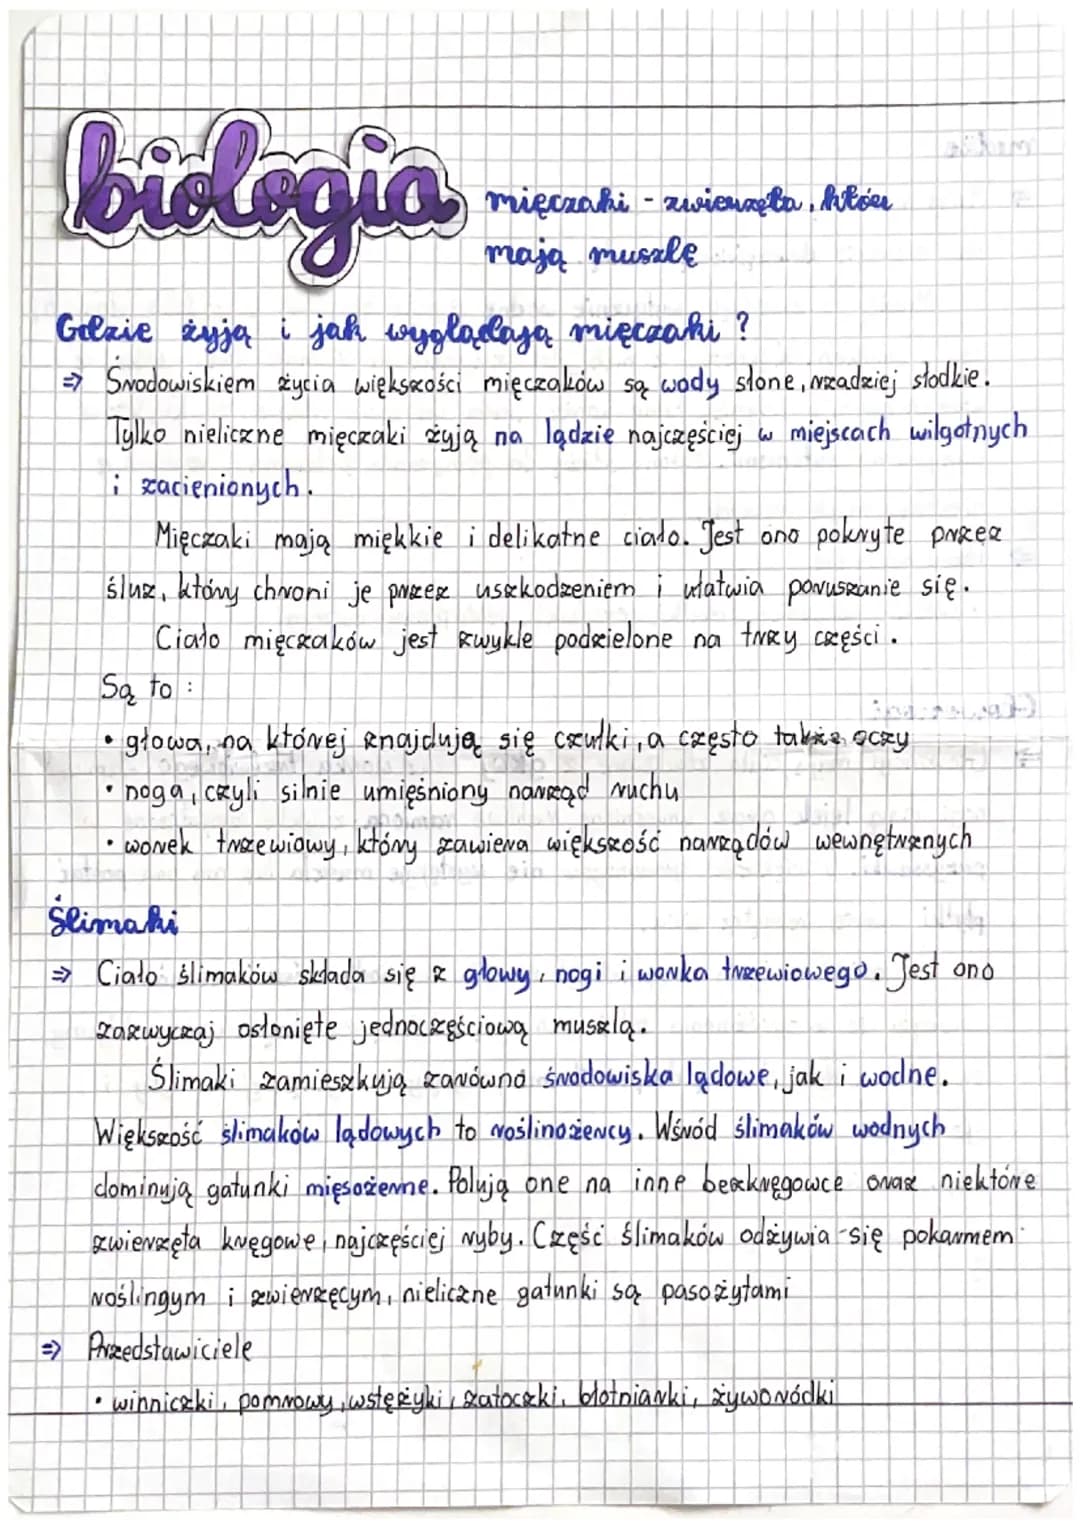 biologia
mięczaki - zwierzęta, któr
mają muszlę
Gdzie żyją i jak wyglądają mięczaki ?
⇒ Środowiskiem życia większości mięczaków są wody słone, rzadziej słodkie.
Tylko nieliczne mięczaki żyją na lądzie najczęściej w miejscach wilgotnych
i zacienionych.
Mięczaki mają miękkie i delikatne ciało. Jest ono pokryte przez
śluz, który chroni je przez uszkodzeniem i ułatwia poruszanie się.
Ciało mięczaków jest zwykle podzielone na trzy części.
Są to :
• głowa, na której znajdują się czułki, a często także oczy
• noga, czyli silnie umięśniony narząd ruchu
• worek trzewiowy, który zawiera większość narządów wewnętrznych
Ślimaki
⇒ Ciało ślimaków składa się z głowy, nogi i worka trzewiowego. Jest ono
zazwyczaj osłonięte jednoczęściową muszlą.
Ślimaki zamieszkują zarówno środowiska lądowe, jak i wodne.
Większość ślimaków lądowych to roślinożercy. Wśród ślimaków wodnych
dominują gatunki mięsożerne. Polują one na inne bezkręgowce oraz niektóre
zwierzęta kręgowe, najczęściej ryby. Część ślimaków odżywia się pokarmem
roślinnym i zwierzęcym, nieliczne gatunki są pasożytami
⇒ Przedstawiciele
• winniczki, pomrowy, wstężyki, zatoczki, błotniarki, żyworódki